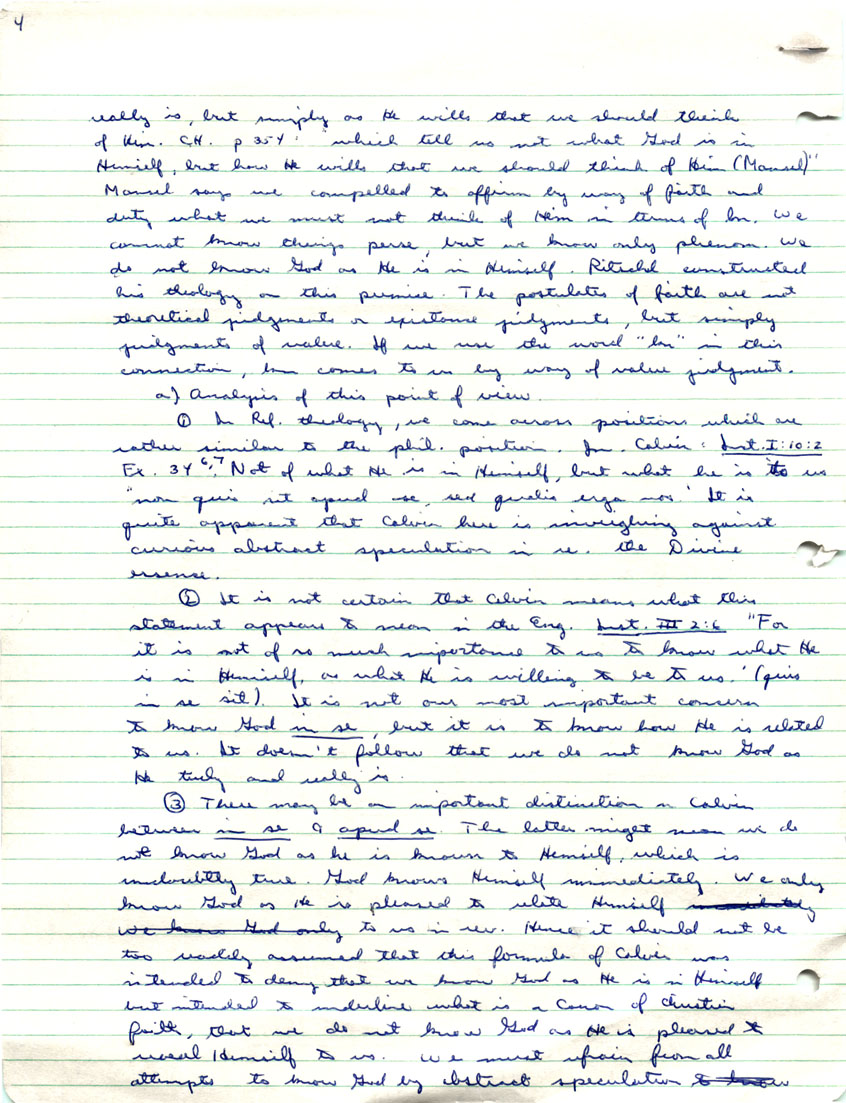 4
really is, but simply as He wills that we should think
of Him. C.H. p 354: "which tell us not what God is in
Himself, but how He wills that we should think of Him (Mansel)"
Mansel says we compelled to affirm by way of faith and
duty what we must not think of Him in terms of kn. We
cannot know things perse, but we know only phenom. We
do not know God as He is in Himself. Ritschl constructed
his theology on this premise. The postulates of faith are not
theoretical judgments or existance judgments, but simply
judgments of value. If we use the word "kn" in this
connection, kn comes to us by way of value judgment.
a) Analysis of this point of view.
① In Ref. theology, we come across positions which are
rather similar to the phil. position. In. Calvin: Inst. I:10:2
Ex. 34 6,7, Not of what He is in Himself, but what he is to us
"non quis sit apud se, sed qualis erga nos' It is
quite apparent that Calvin here is inveighing against
curious abstract speculation in re. the Divine
essense.
② It is not certain that Calvin means what this
statement appears to mean in the Eng. Inst. III 2:6 "For
it is not of so much importance to us to know what He
is in Himself, as what He is willing to be to us.' (quis
in se sit). It is not our most important concern
to know God in se, but it is to know how He is related
to us. It doesn't follow that we do not know God as
He truly and really is.
③ There may be an important distinction in Calvin
between in se & apud se. The latter might mean we do
not know God as he is known to Himself, which is
undoubtly true. God knows Himself immediately. We only
know God as He is pleased to relate Himself immediately
we know God only to us in rev. Hence it should not be
too readily assumed that this formula of Calvin was
intended to deny that we know God as He is in Himself
but intended to underline what is a Canon of christian
faith, that we do not know God as He is pleased to
reveal Himself to us. We must refrain from all
attempts to know God by abstract speculation to know